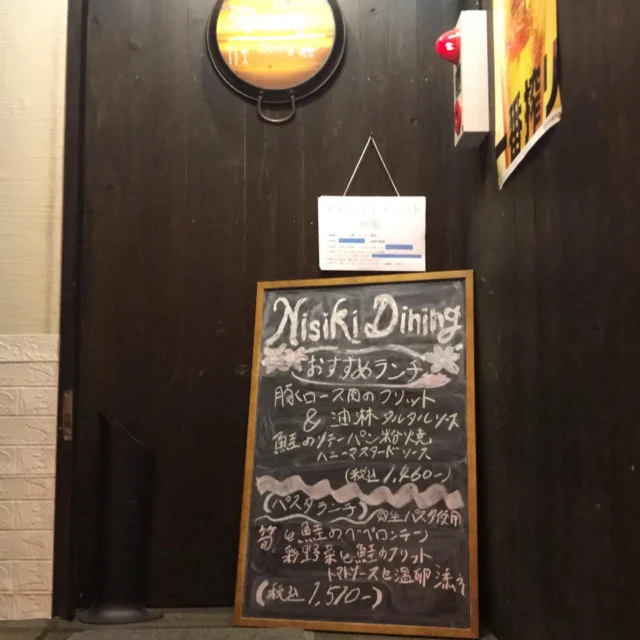 Dining
一番搾り
アルバイト・パート
募集
Nisiki Dining
おすすめランチ
豚ロース肉のフリット
& 油淋タルタルソース
鮭のソテーパン粉焼
ハニーマスタードソース
(税込 1,460-)
(パスタランチ) 生パスタ使用
筍と鮭のペペロンチーノ
彩野菜と鮭のフリット
トマトソースと温卵添え
(税込 1,510-)